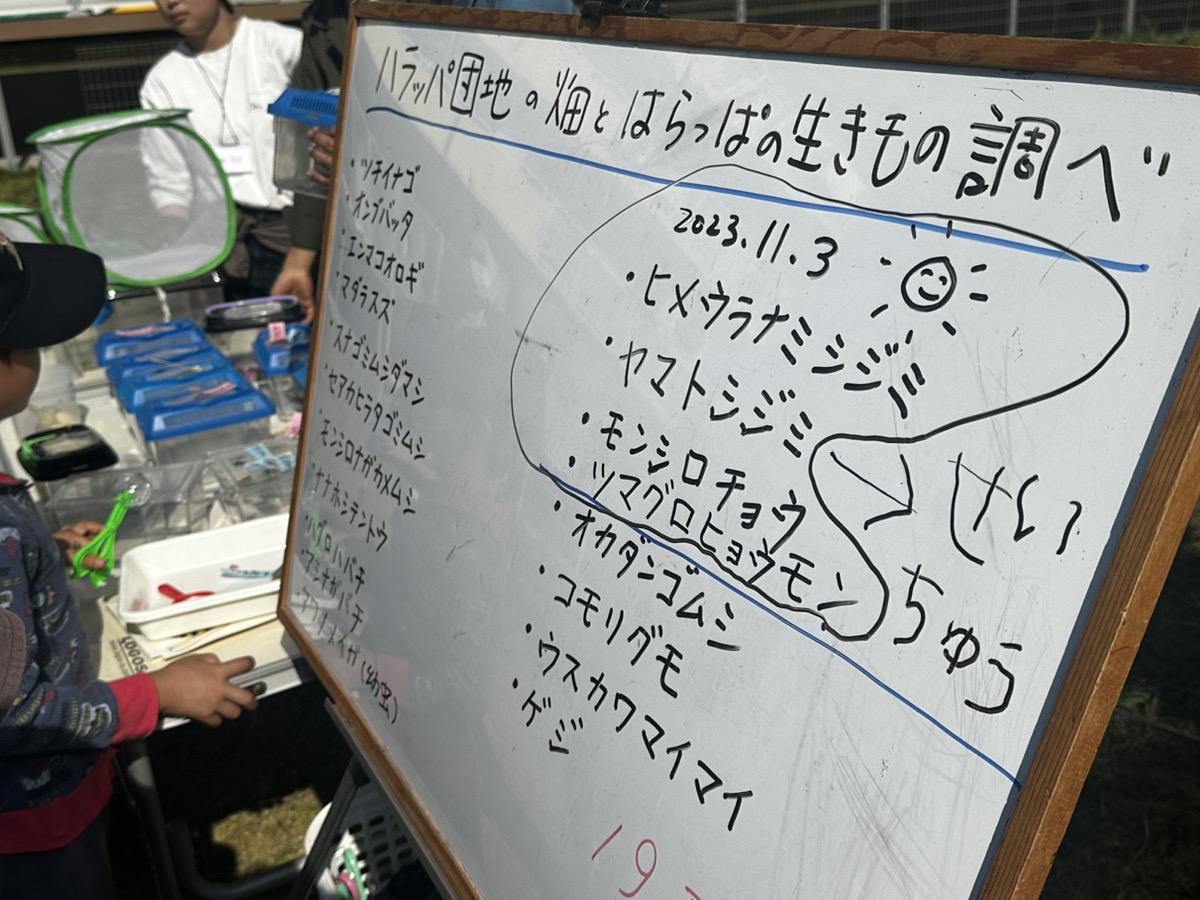 ハラッパ団地の畑とはらっぱの生きもの調べ"
・ツチイナゴ
・オンブバッタ
・エンマコオロギ
・マダラスズ
・スナゴミムシダマシ
・セアカヒラタゴミムシ
・モンシロナガカメムシ
・ナナホシテントウ
・ハグロハバチ
・アシナガバチ
(幼虫)
2023.11.3
・ヒメウラナミシジミ
・ヤマトシジミ
・モンシロチョウ
・ツマグロヒョウモン
せい
ちゅう
・オカダンゴムシ
・コモリグモ
・ウスカワマイマイ
・ゲジ
19
LOGOS